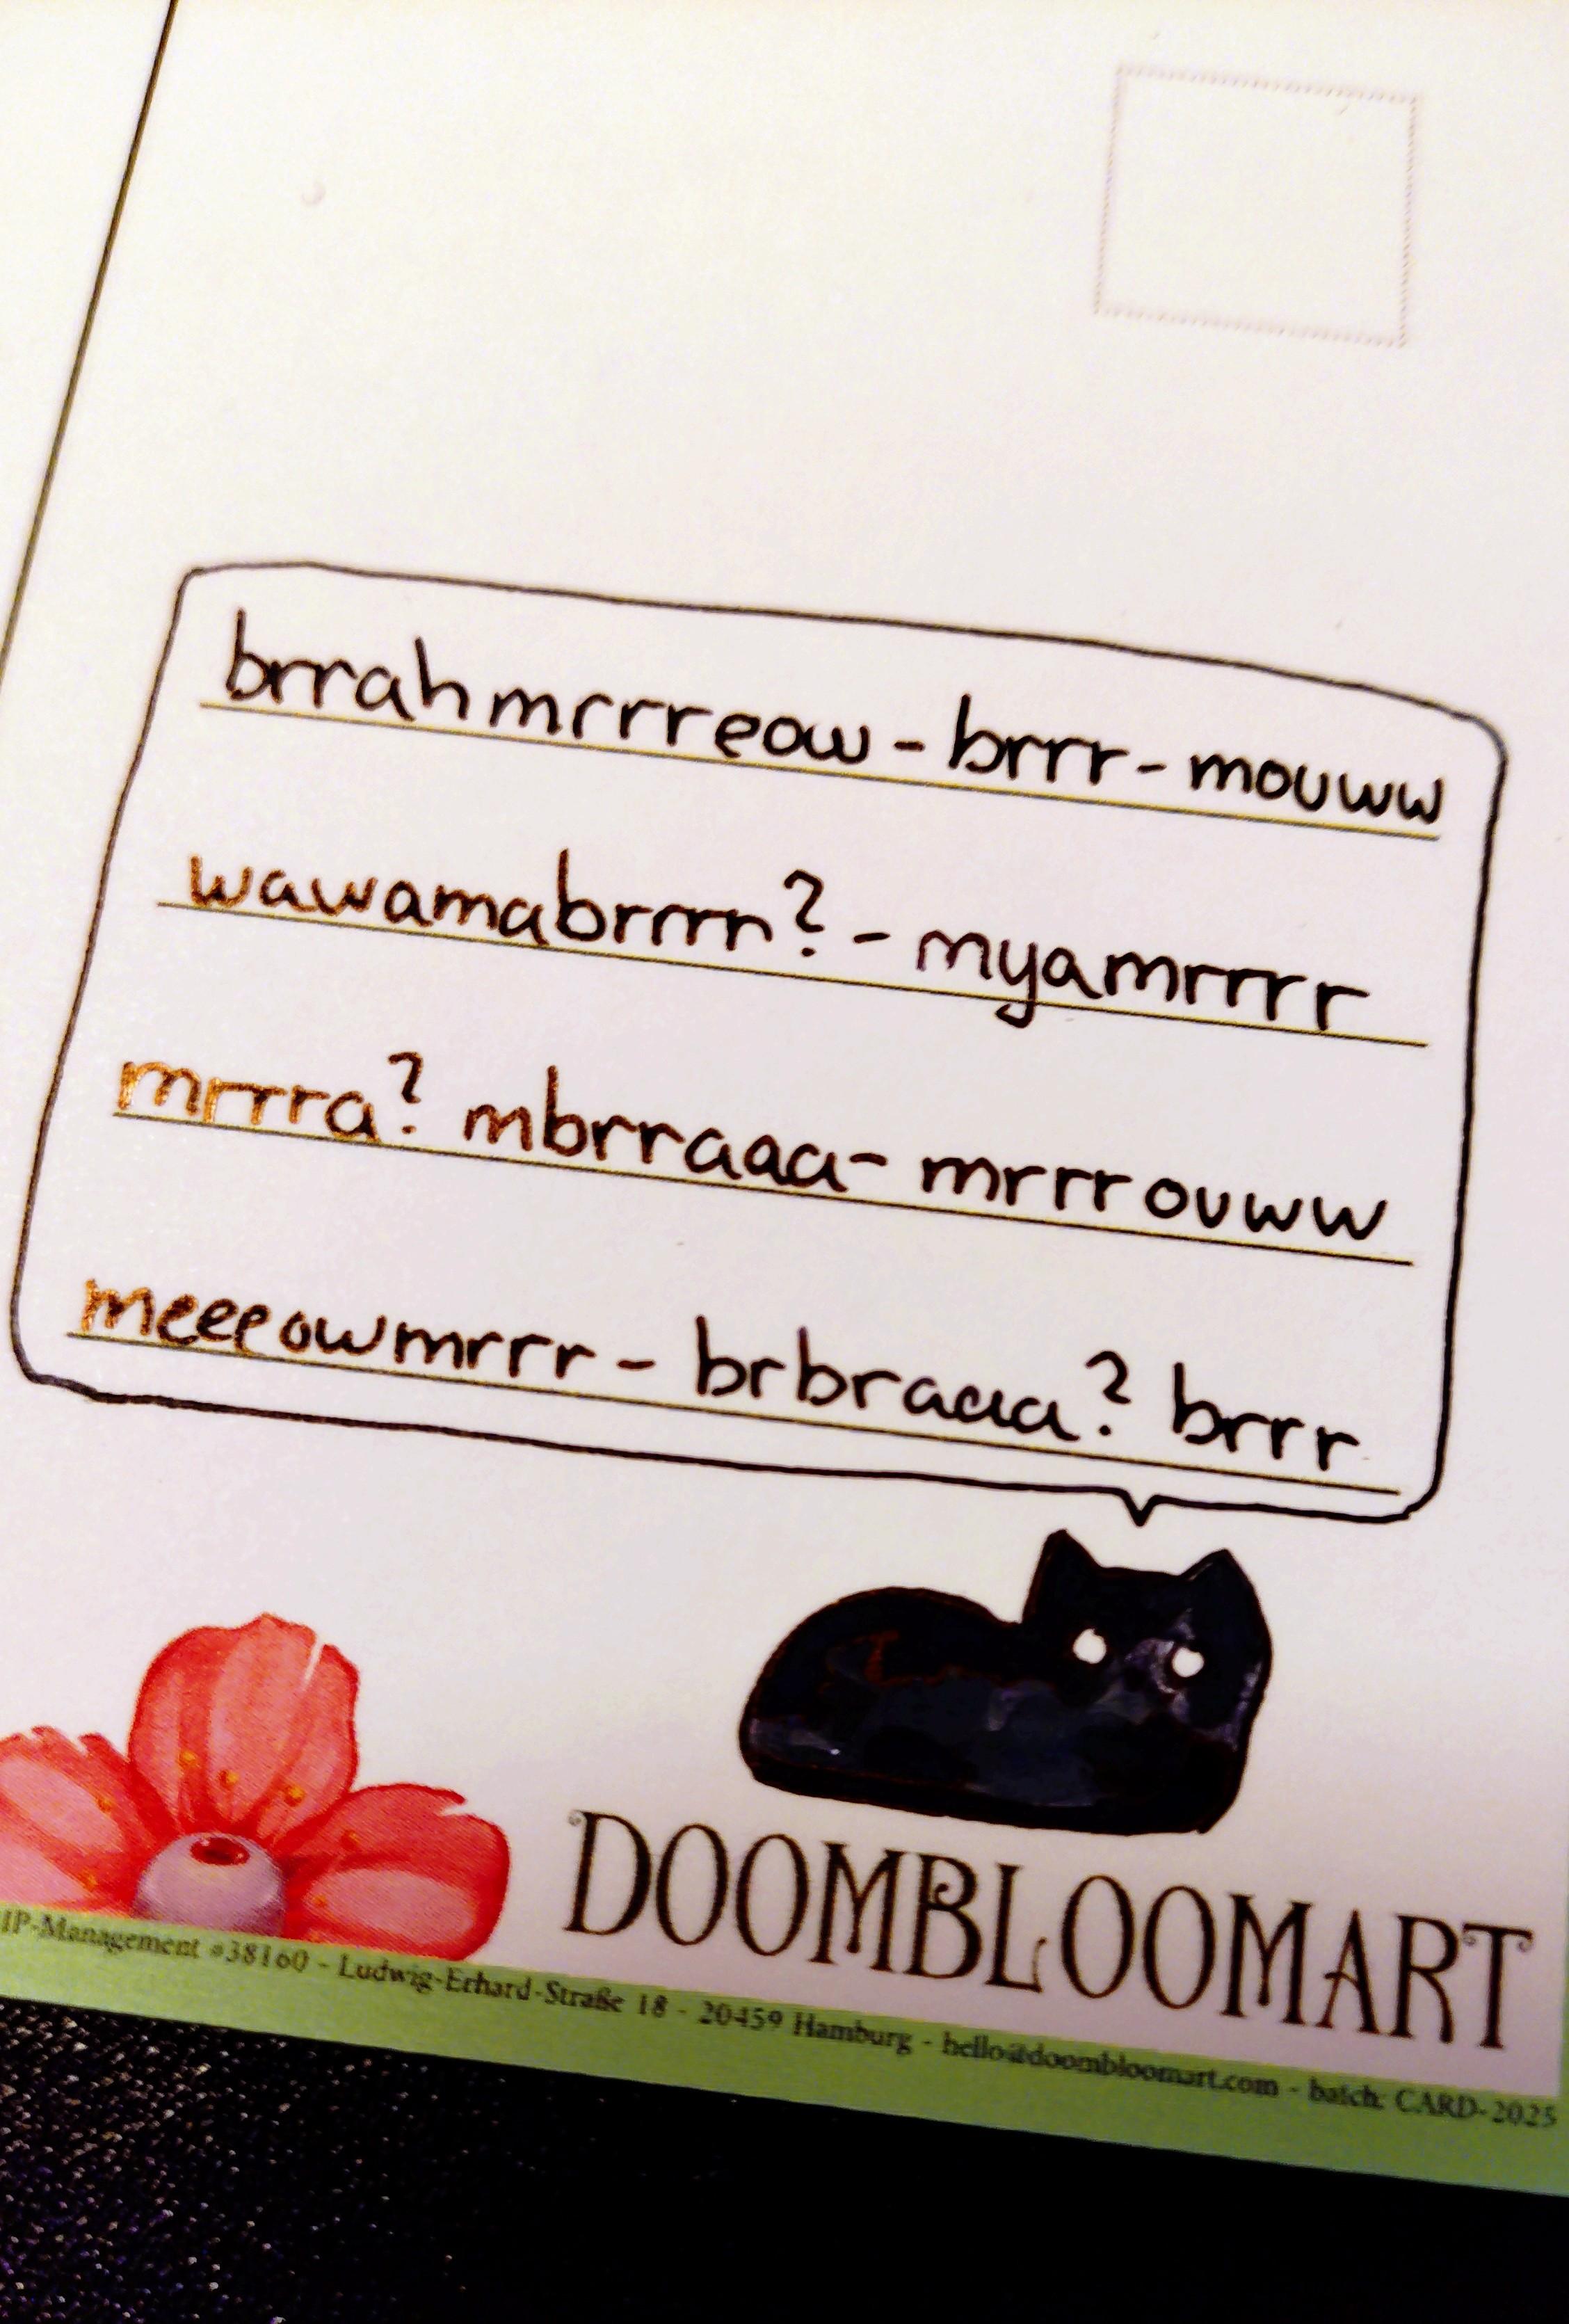 brrahmrrreow - brrr - mouww
wawamabrrrr? - myamrrrr
mrrrra? mbrraaaa - mrrrrouww
meeeowmrrr - brbraaaa? brrr
DOOMBLOOMART
IP-Management #38160 - Ludwig-Erhard-Straße 18 - 20459 Hamburg - hello@doombloomart.com - batch: CARD-2025